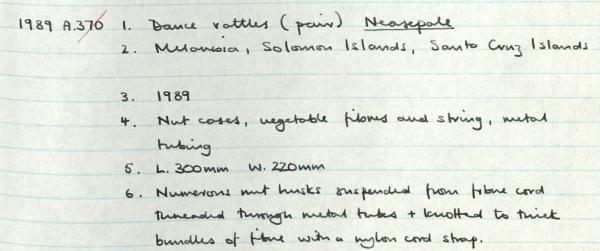 1989 A.370 1. Dance rattles (pair) Neasepale
2. Melanesia, Solomon Islands, Santa Cruz Islands
3. 1989
4. Nut cases, vegetable fibres and string, metal
tubing
5. L. 300mm W. 220mm
6. Numerous nut husks suspended from fibre cord
threaded through metal tubes + knotted to thick
bundles of fibre with a nylon cord strap.